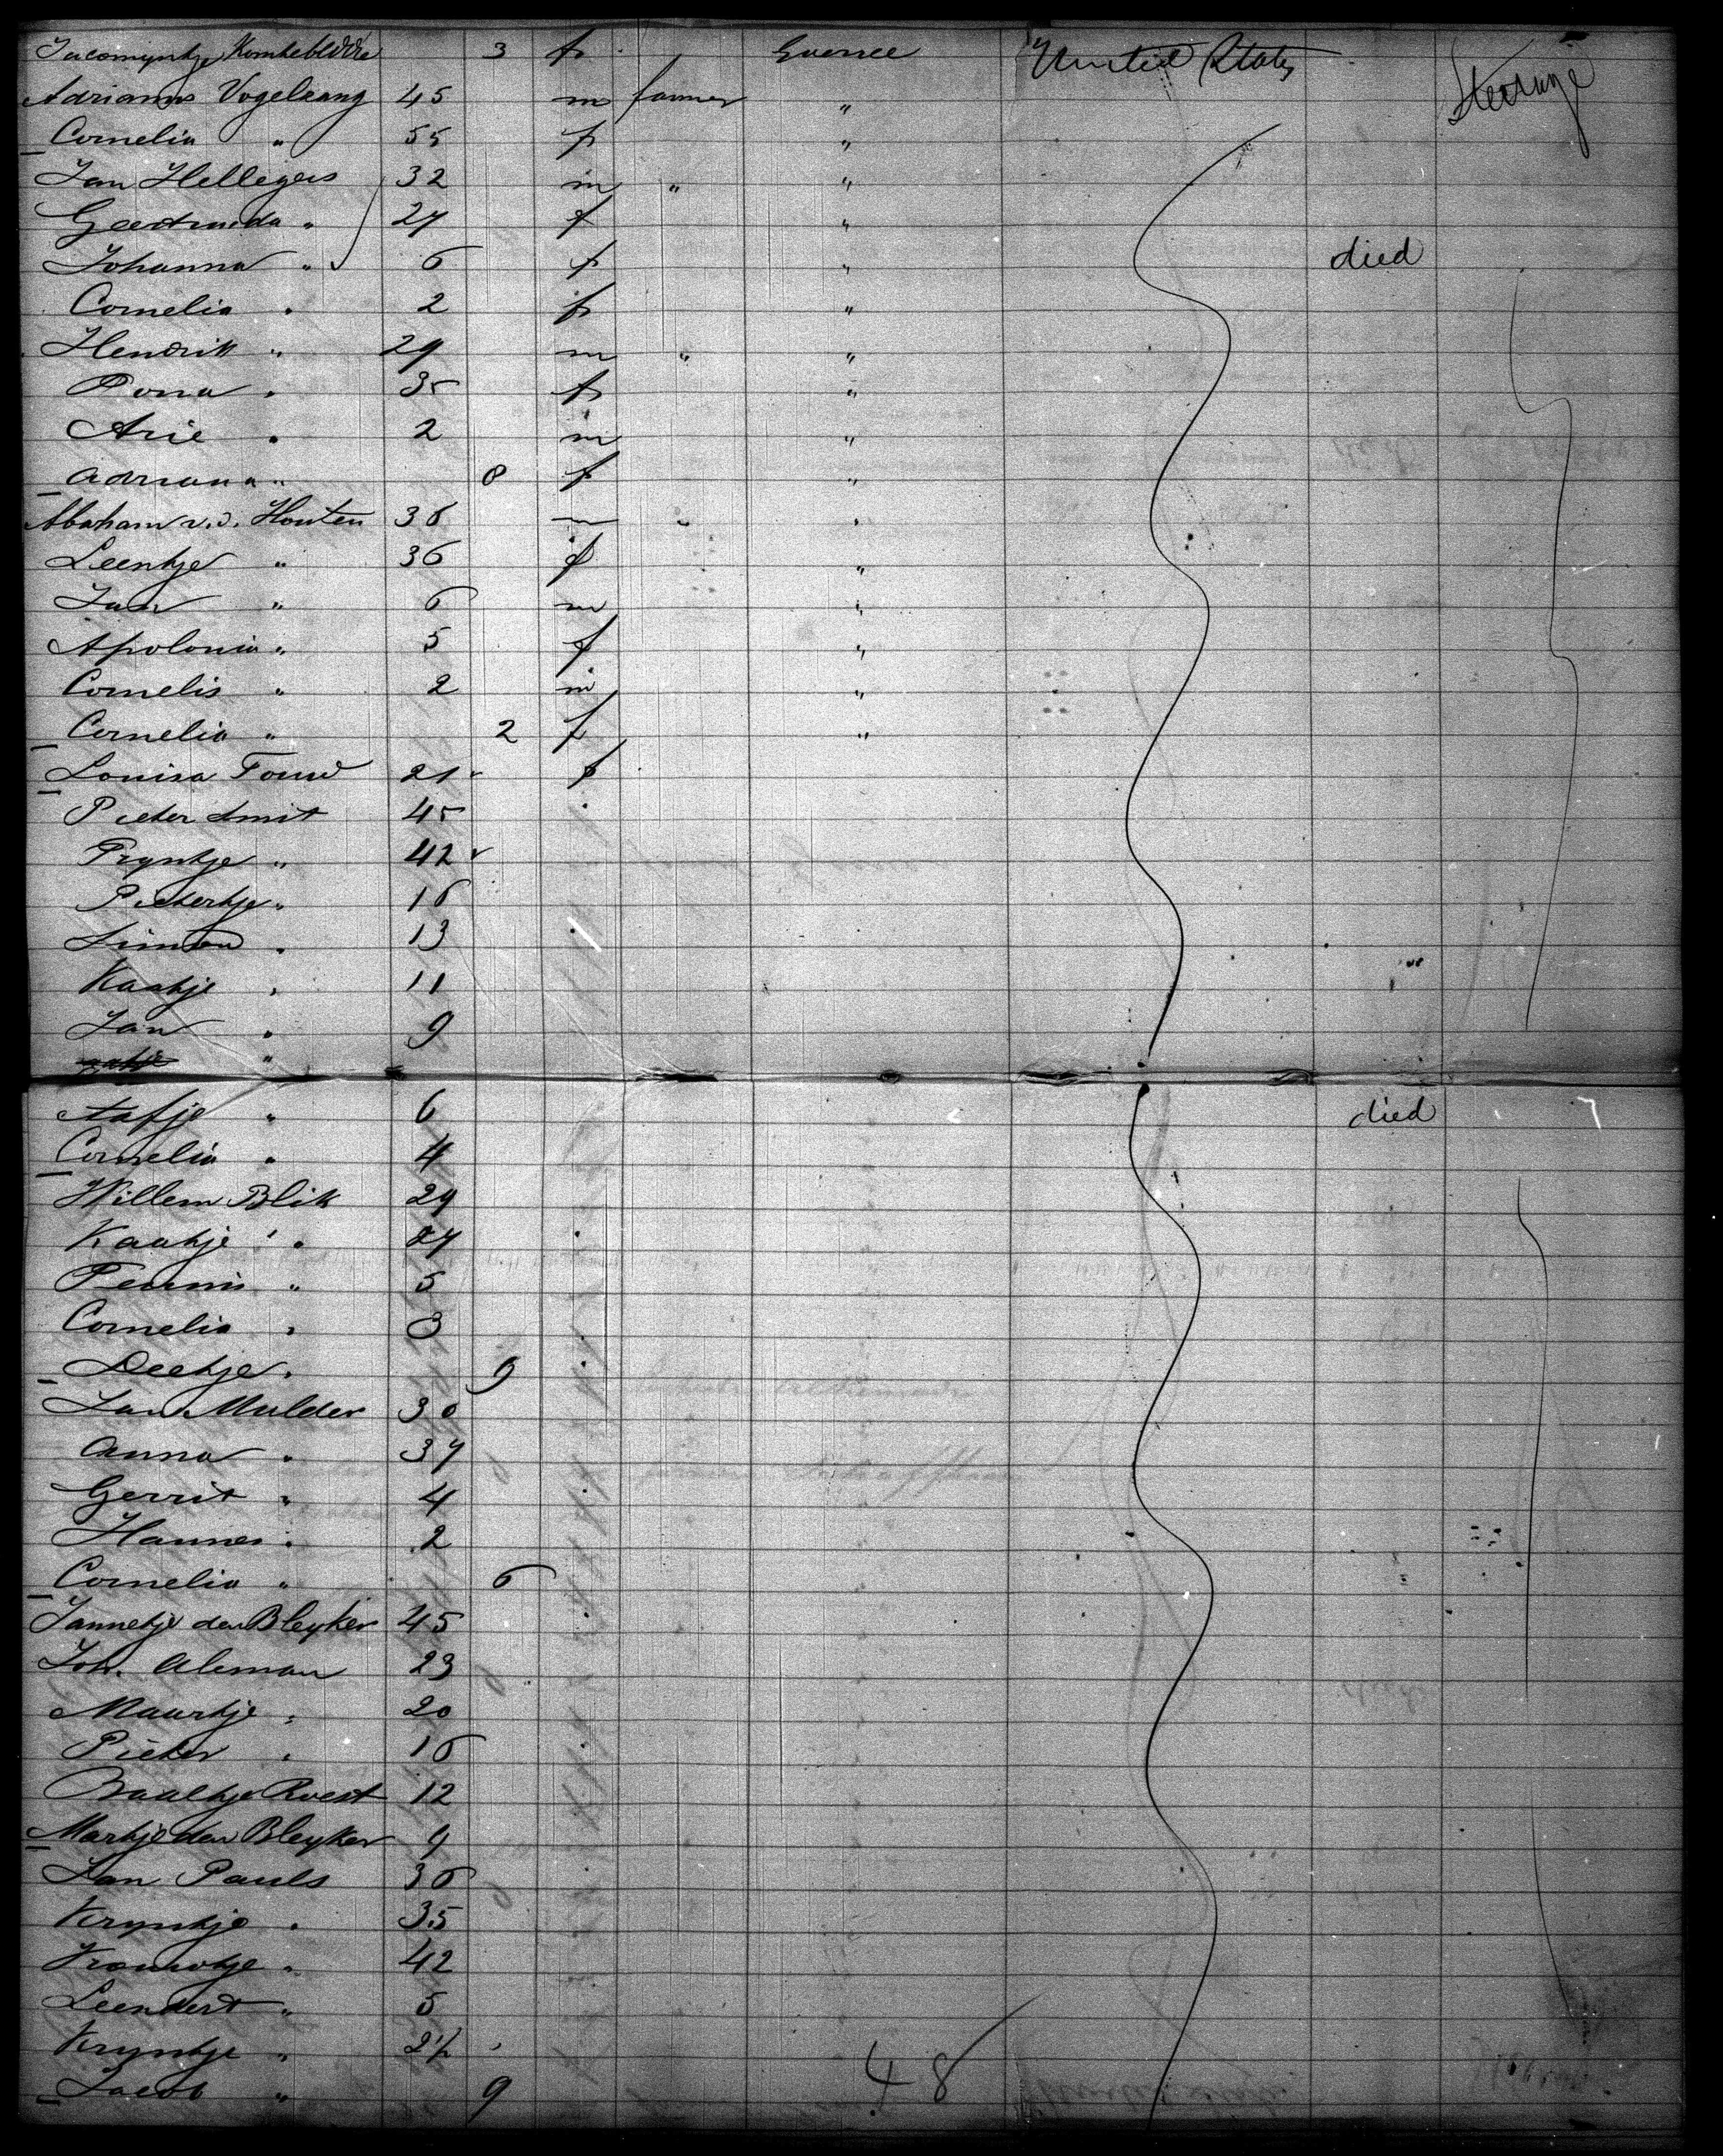 Jacomyntje 3 f Goeree United States Steerage
Adrianus Vogelzang 45 m farmer "
Cornelia " 55 f "
Jan Hellegers 32 m " "
Geertruida " 27 f "
Johanna " 6 f " died
Cornelia " 2 f "
Hendrik " 29 m " "
Pona " 35 f "
Arie " 2 m "
Adriana " 8 f "
Abraham v.d. Houten 36 m " "
Leentje " 36 f "
Jan " 6 m "
Apolonia " 5 f "
Cornelis " 2 m "
Cornelia " 2 f "
Louisa Touw 21 f
Pieter Smit 45
Tryntje " 42
Pietertje " 16
Simon " 13
Kaatje " 11
Jan " 9
"
Aafje " 6 died
Cornelia " 4
Willem Blik 29
Kaatje " 27
Teunis " 5
Cornelia " 3
Deetje " 9
Jan Mulder 30
Anna " 37
Gerrit " 4
Hannes " 2
Cornelia " 6
Jannetje den Bleyker 45
Joh. Aleman 23
Maartje " 20
Pieter " 16
Baaltje Roest 12
Martje den Bleyker 9
Jan Pauls 36
Kryntje " 35
42
Leendert " 5
Kryntje " 2½
Jacob " 9
48